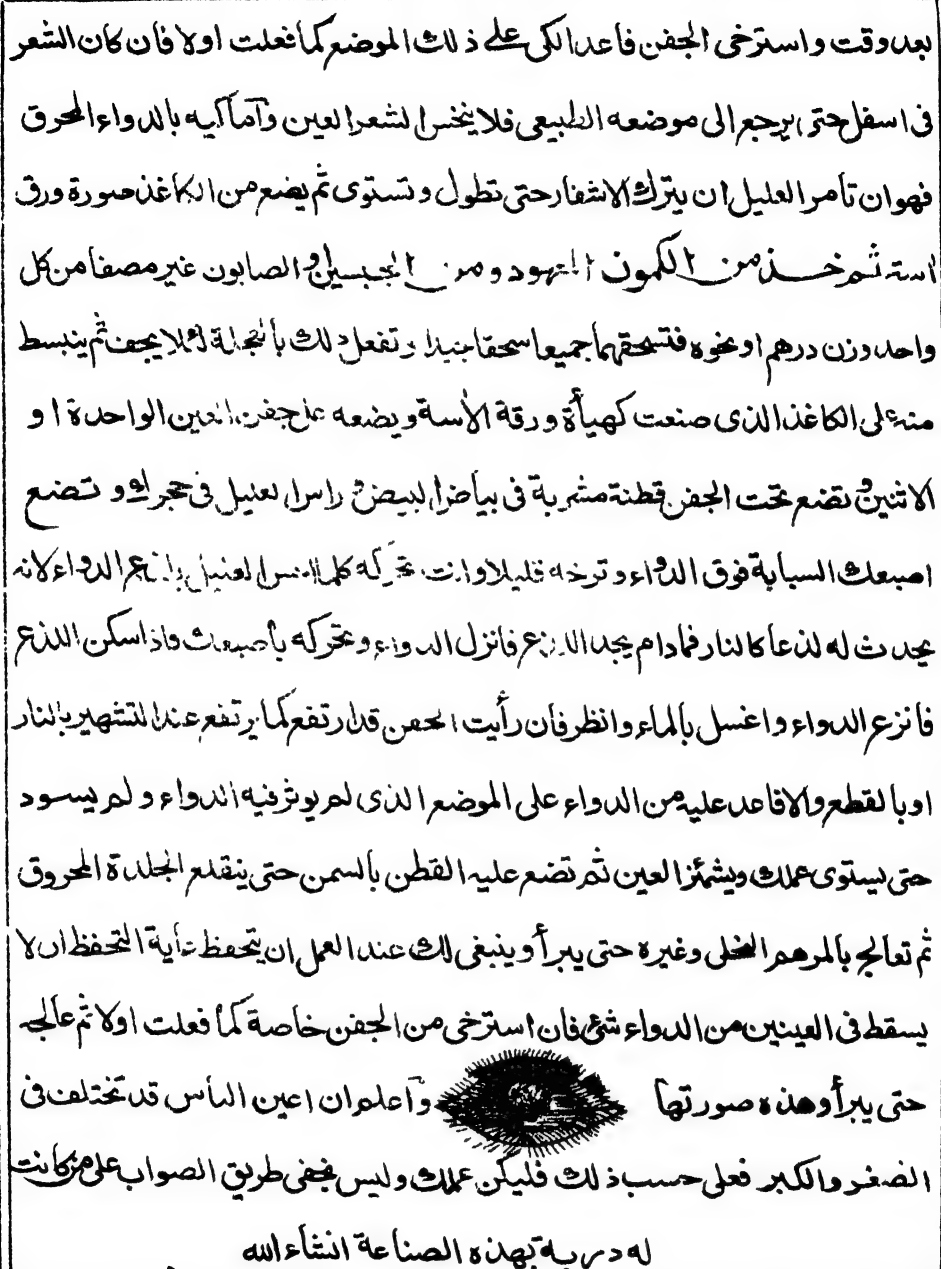 بعد وقت واسترخى الجفن فاعد الكى على ذلك الموضع كما فعلت اولا فان كان الشعر
فى اسفل حتى يرجع الى موضعه الطبيعى فلا ينخس الشعر العين وآما كيه بالدواء المحرق
فهو ان تأمر العليل ان يترك الاشفار حتى تطول وتستوى ثم يضع من الكاغذ صورة ورق
اسة ثم خذ من الكمون ومن الصابون غير مصفا من كل
واحد وزن درهم او نحوه فتسحقهما جميعا سحقا جيدا وتفعل ذلك بالعجلة لئلا يجف ثم ينبسط
منه على الكاغذ الذى صنعت كهيأة ورقة الأسة ويضعه على جفن العين الواحدة او
الاثنين وتضع تحت الجفن قطنة مشربة فى بياض البيض و راس العليل فى حجرك و تضع
اصبعك السبابة فوق الدواء و ترخه قليلا وانت تحركه كلما العليل الدواء لانه
يحدث له لذعا كالنار فما دام يجد اللذع فانزل الدواء وتحركه بأصبعك فاذا سكن اللذع
فانزع الدواء واغسل بالماء وانظر فان رأيت الجفن قد ارتفع كما يرتفع عند التشهير بالنار
او بالقطع والا فاعد عليه من الدواء على الموضع الذى لم يوثر فيه الدواء ولم يسود
حتى يستوى عملك ويشمئز العين ثم تضع عليه القطن بالسمن حتى ينقلع الجلدة المحروق
ثم تعالج بالمرهم النخلى وغيره حتى يبرأ وينبغى لك عند العمل ان يتحفظ غاية التحفظ ان لا
يسقط فى العينين من الدواء شئ فان استرخى من الجفن خاصة كما فعلت اولا ثم عالجه
حتى يبرأ وهذه صورتها وآعلم ان اعين الناس قد تختلف فى
الصغر والكبر فعلى حسب ذلك فليكن عملك وليس يخفى طريق الصواب على من كانت
له دربة بهذه الصناعة انشاء الله